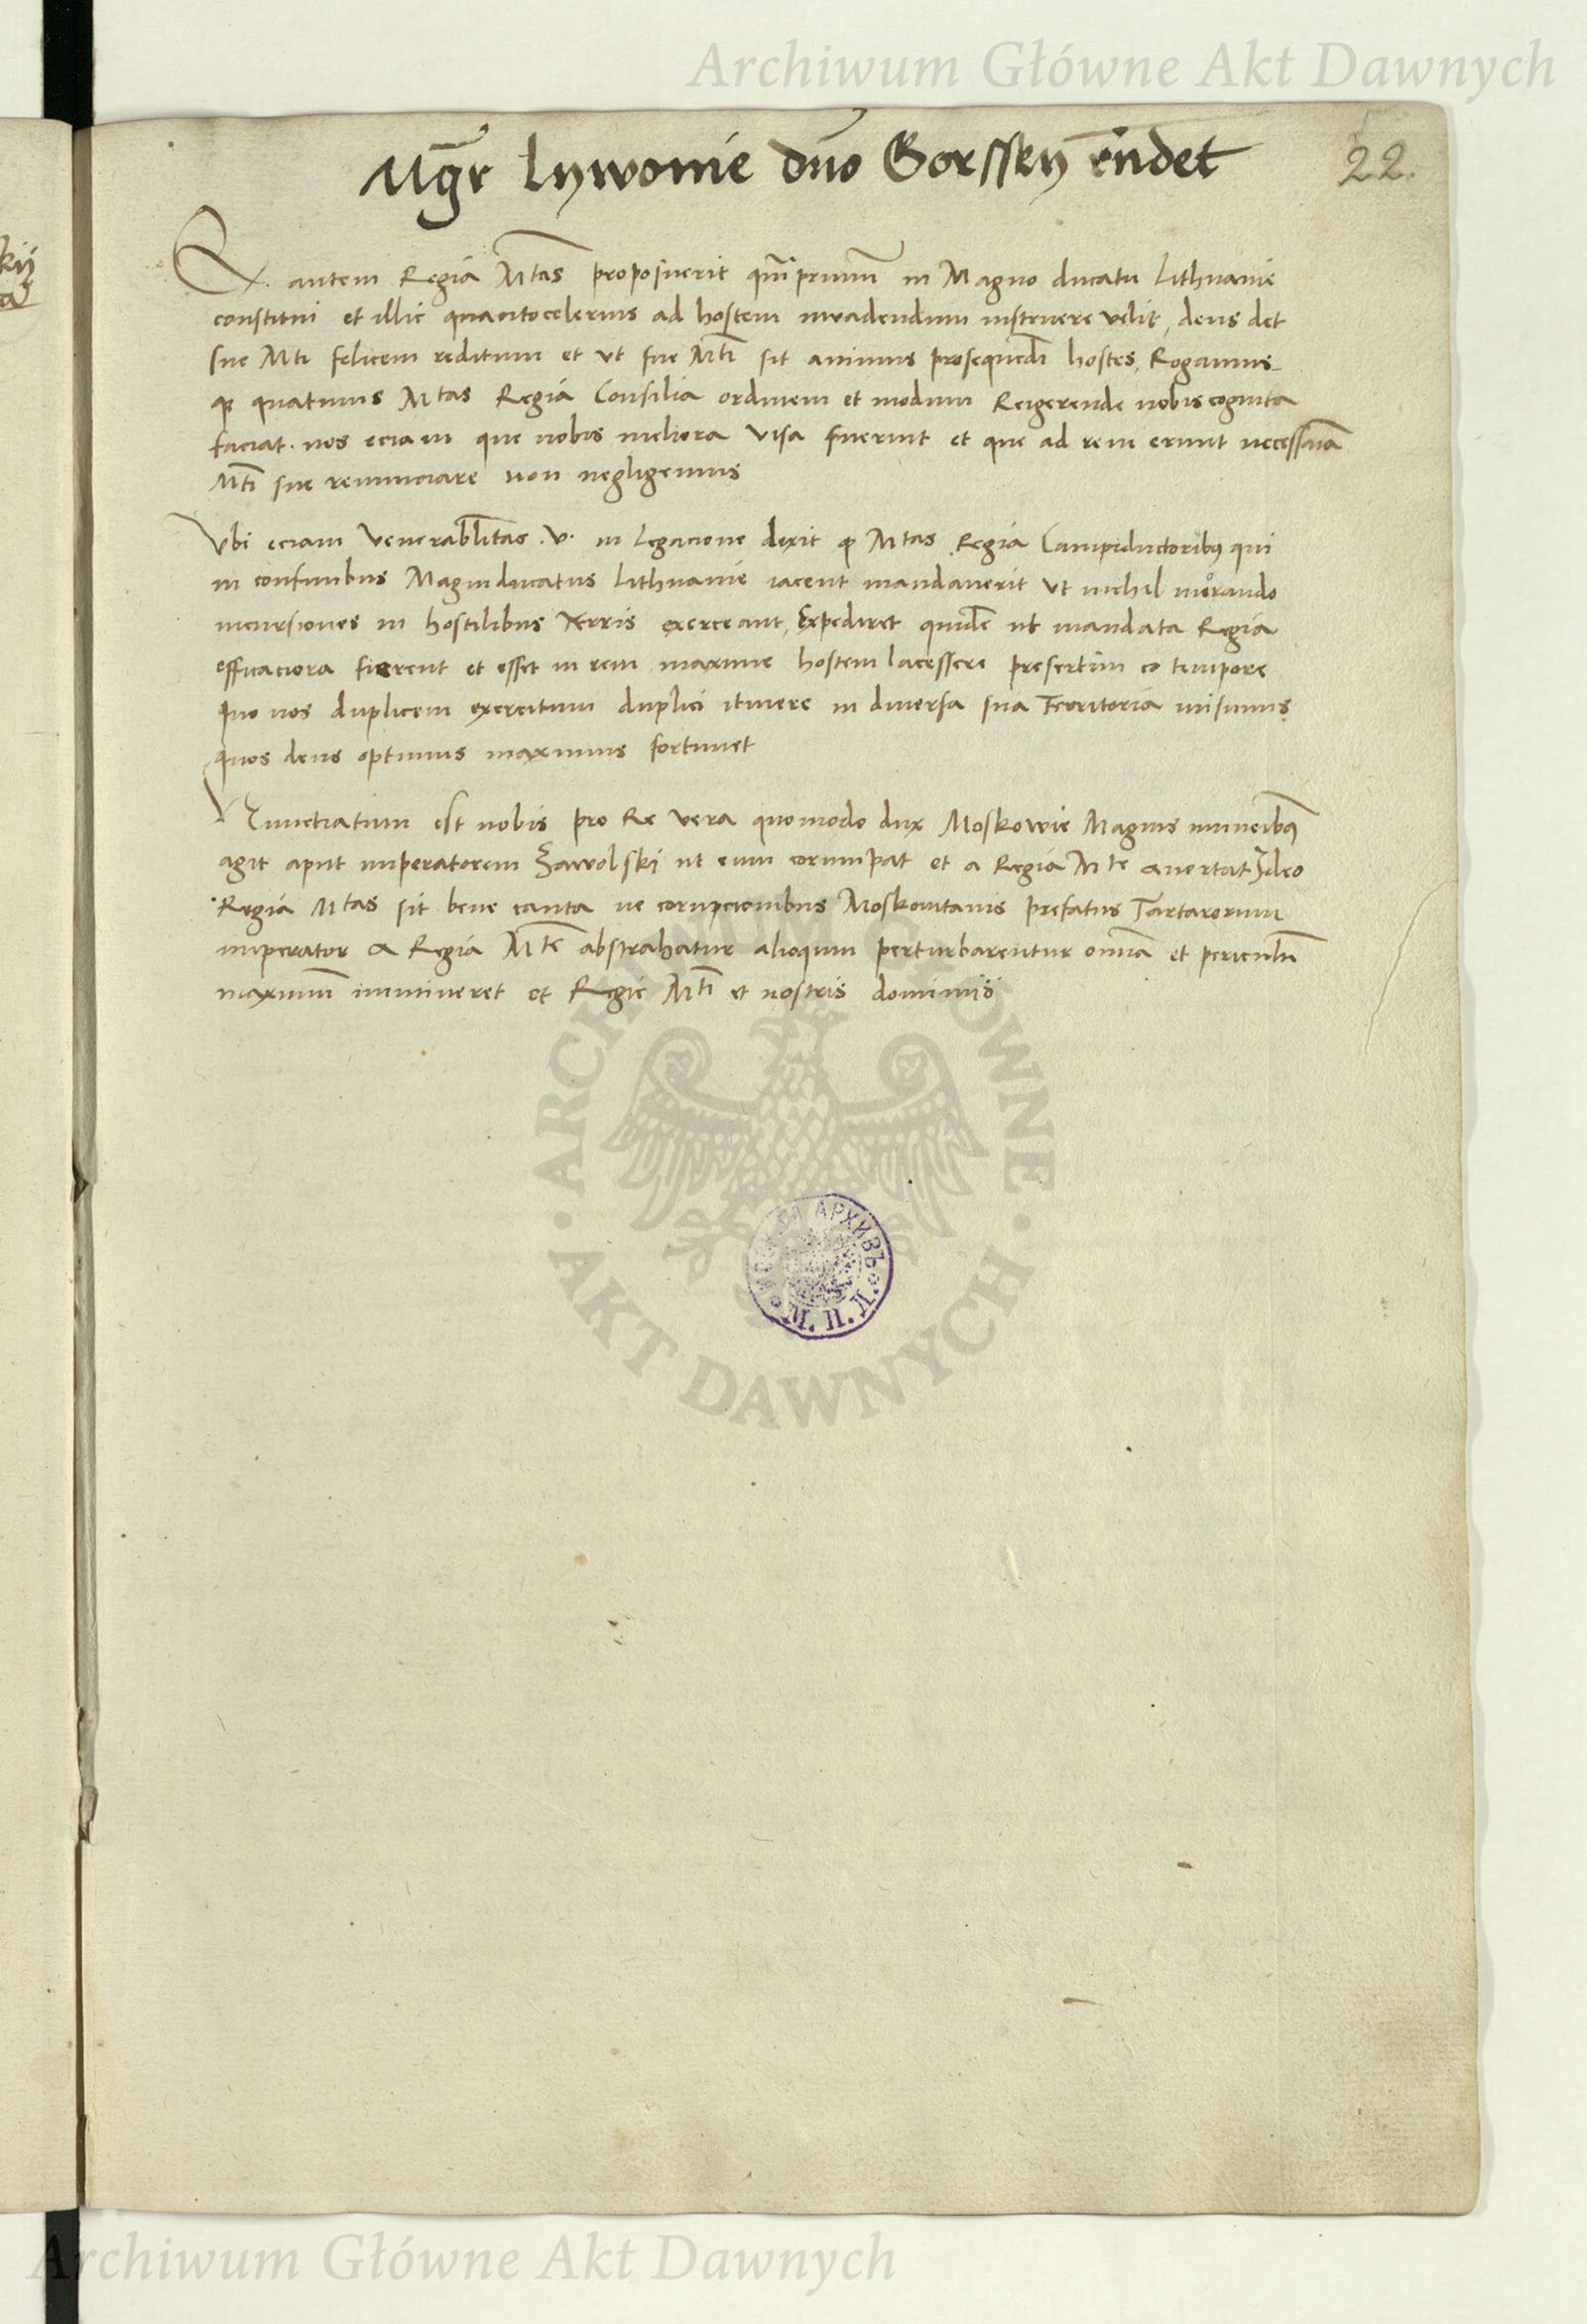 Archiwum Główne Akt Dawnych
22.
Mgr̄ lywonie dn̄o Gorssky rn̄det
Q. autem Regia Mtas proposuerit qm̄primum in Magno ducatu Lithuanie
constitui et illic quantocelerius ad hostem invadendum instruere velit, deus det
sue Mti felicem reditum et ut sue Mti sit animus prosequēdi hostes, Rogamus
quatinus Mtas Regia Consilia ordinem et modum Reigerende nobis cognita
faciat. nos eciam que nobis meliora visa fuerint et que ad rem erunt necessaria
Mti sue renunciare non negligemus
Ubi eciam Venerabilitas .V. in Legacione dixit q Mtas Regia Campiductoribus qui
in confinibus Magniducatus Lithuanie iacent mandaverit ut nichil morando
incursiones in hostilibus Terris exerceant, Expediret quidē ut mandata Regia
efficaciora fierent et esset in rem maxime hostem lacessere presertim eo tempore
Quo nos duplicem exercitum duplici itinere in diversa sua Territoria misimus
quos deus optimus maximus fortunet
Nunctiatum est nobis pro Re vera quomodo dux Moskowie Magnus muneribus
agit aput imperatorem Zawolski ut eum corrumpat et a Regia Mte avertat Ideo
Regia Mtas sit bene cauta ne corrupcionibus Moskovitanis prefatus Tartarorum
imperator a Regia Mte abstrahatur alioquin perturbarentur omnia et periculum
maximum immineret et Regie Mti et nostris dominiis
ARCHIWUM GŁÓWNE
AKT DAWNYCH
АРХИВЪ
М. И. Д.
Archiwum Główne Akt Dawnych